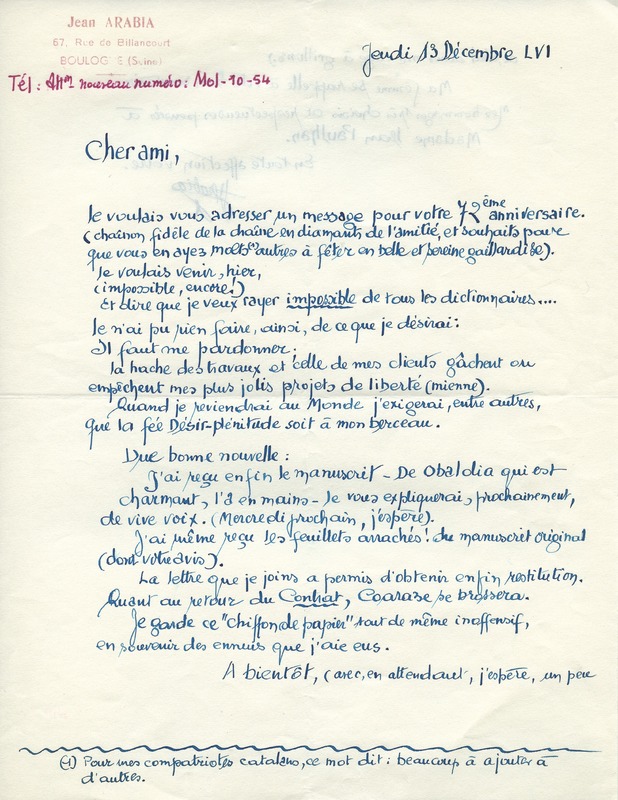 Jean ARABIA
67, Rue de Billancourt
BOULOGNE (Seine)
Tél: Attn nouveau numéro: Mol-10-54
Jeudi 13 Décembre LVI
Cher ami,
Je voulais vous adresser un message pour votre 72ème anniversaire.
(chaînon fidèle de la chaîne en diamants de l'amitié, et souhaits pour
que vous en ayez molts(1) autres à fêter en belle et sereine gaillardise).
Je voulais venir, hier,
(impossible, encore!)
Et dire que je veux rayer impossible de tous les dictionnaires....
Je n'ai pu rien faire, ainsi, de ce que je désirai:
Il faut me pardonner:
la hache des travaux et celle de mes clients gâchent ou
empêchent mes plus jolis projets de liberté (mienne).
Quand je reviendrai au Monde j'exigerai, entre autres,
que la fée Désir-plénitude soit à mon berceau.
Une bonne nouvelle:
J'ai reçu enfin le manuscrit - De Obaldia qui est
charmant, l'a en mains - Je vous expliquerai, prochainement,
de vive voix. (Mercredi prochain, j'espère).
J'ai même reçu les feuillets arrachés! du manuscrit original
(dont votre avis).
La lettre que je joins a permis d'obtenir enfin restitution.
Quant au retour du Contrat, Coarase se brossera.
Je garde ce "chiffon de papier" tout de même inoffensif,
en souvenir des ennuis que j'aie eus.
A bientôt, (avec, en attendant, j'espère, un peu
(1) Pour mes compatriotes catalans, ce mot dit: beaucoup à ajouter à
d'autres.